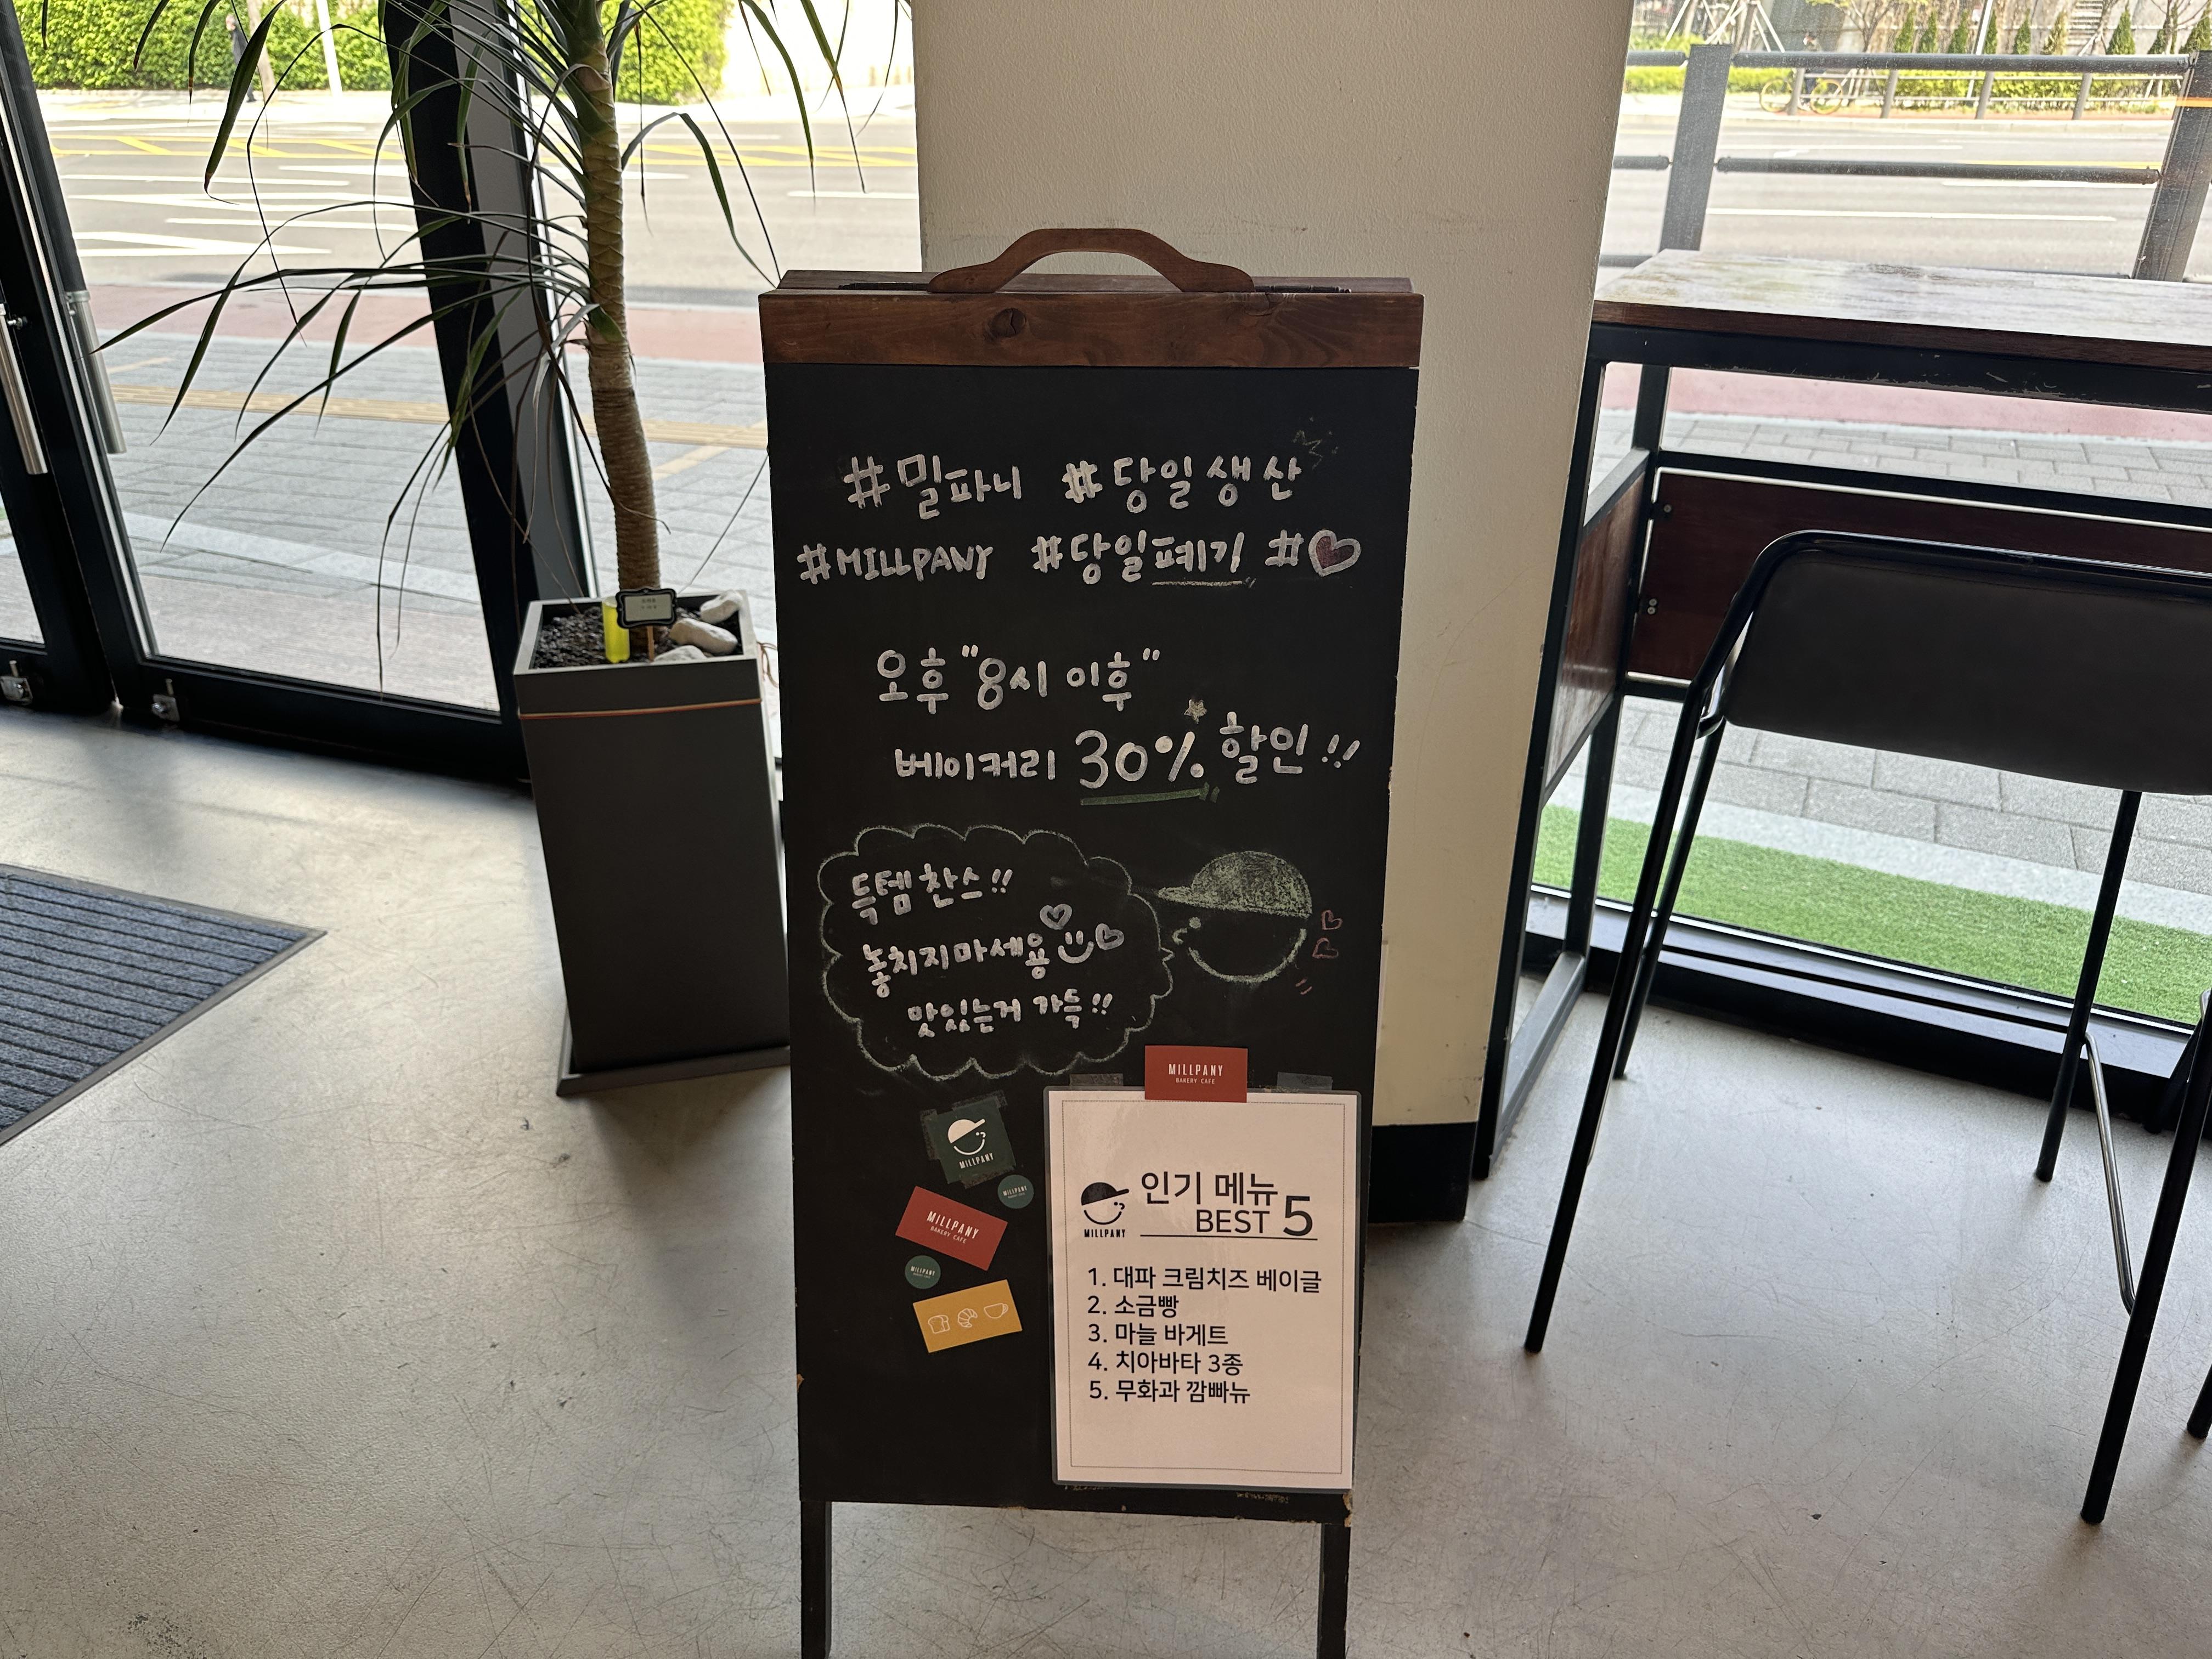 #밀파니 #당일생산
#MILLPANY #당일폐기 #♡
오후 "8시 이후"
베이커리 30% 할인!!
득템찬스!!
놓치지마세용
맛있는거 가득!!
MILLPANY
BAKERY CAFE
MILLPANY
MILLPANY
MILLPANY
BAKERY CAFE
MILLPANY
MILLPANY
인기 메뉴
BEST 5
1. 대파 크림치즈 베이글
2. 소금빵
3. 마늘 바게트
4. 치아바타 3종
5. 무화과 깜빠뉴